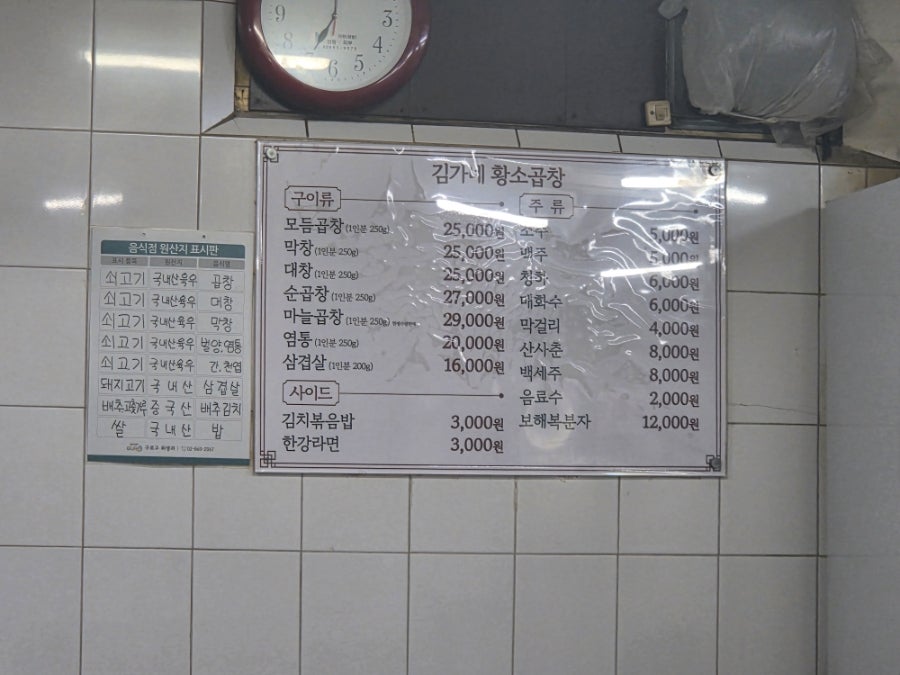 9
8
7
6
5
4
3
김가네 황소곱창
구이류
모듬곱창 (1인분 250g) 25,000원
막창 (1인분 250g) 25,000원
대창 (1인분 250g) 25,000원
순곱창 (1인분 250g) 27,000원
마늘곱창 (1인분 250g) 29,000원
염통 (1인분 250g) 20,000원
삼겹살 (1인분 200g) 16,000원
사이드
김치볶음밥 3,000원
한강라면 3,000원
주 류
소주 5,000원
맥주 5,000원
청하 6,000원
대화수 6,000원
막걸리 4,000원
산사춘 8,000원
백세주 8,000원
음료수 2,000원
보해복분자 12,000원
음식점 원산지 표시판
표시 품목 원산지 음식명
쇠고기 국내산육우 곱창
쇠고기 국내산육우 대창
쇠고기 국내산육우 막창
쇠고기 국내산육우 벌양,염통
쇠고기 국내산육우 간,천엽
돼지고기 국내산 삼겹살
배추고춧가루 중국산 배추김치
쌀 국내산 밥